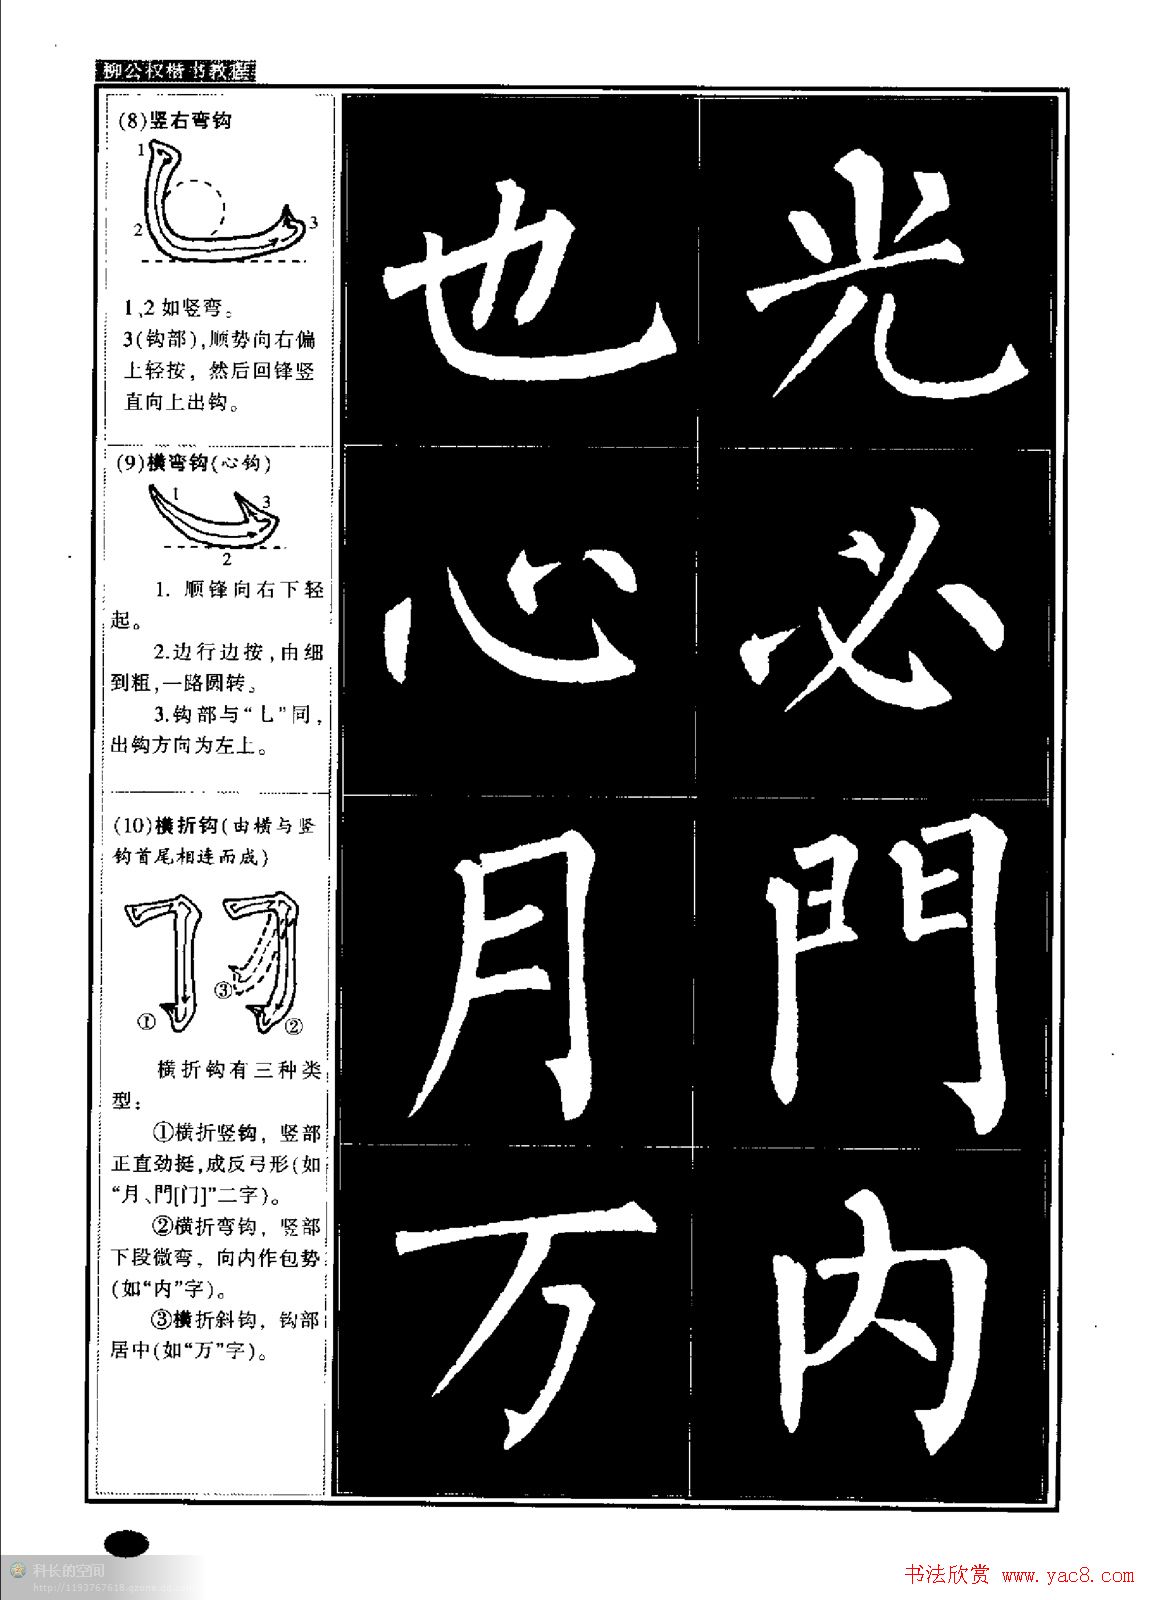 柳公权楷书教程
(8)竖右弯钩
1
2
3
1、2如竖弯。
3(钩部),顺势向右偏
上轻按，然后回锋竖
直向上出钩。
(9)横弯钩(心钩)
1
3
2
1. 顺锋向右下轻
起。
2.边行边按,由细
到粗,一路圆转。
3.钩部与“乚”同,
出钩方向为左上。
(10)横折钩(由横与竖
钩首尾相连而成)
③
① ②
横折钩有三种类
型:
①横折竖钩，竖部
正直劲挺,成反弓形(如
“月、門[门]”二字)。
②横折弯钩，竖部
下段微弯，向内作包势
(如“内”字)。
③横折斜钩，钩部
居中(如“万”字)。
也 光
心 必
月 門
万 内
科长的空间
http://1193767618.qzone.qq.com
书法欣赏 www.yac8.com